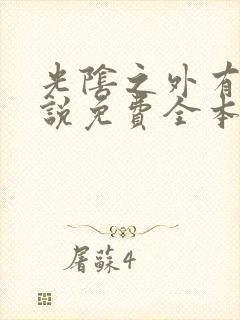 光陰之外有
說免費全本
屠蘇4